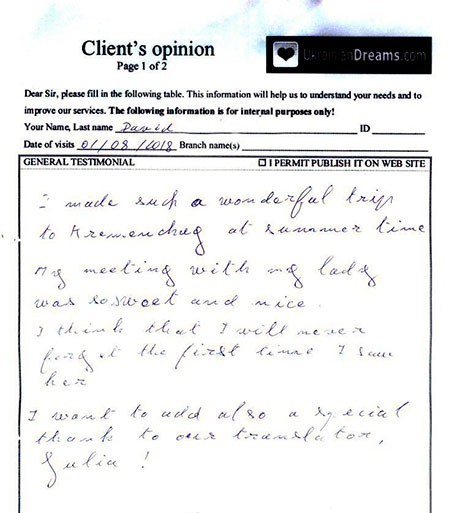 Client's opinion
Page 1 of 2
UkrainianDreams.com
Dear Sir, please fill in the following table. This information will help us to understand your needs and to
improve our services. The following information is for internal purposes only!
Your Name, Last name David ID
Date of visits 01/08/2018 Branch name(s)
GENERAL TESTIMONIAL ☐ I PERMIT PUBLISH IT ON WEB SITE
I made such a wonderful trip
to Kremenchug at summer time
My meeting with my lady
was so sweet and nice.
I think that I will never
forget the first time I saw
her
I want to add also a special
thank to our translator,
Julia !